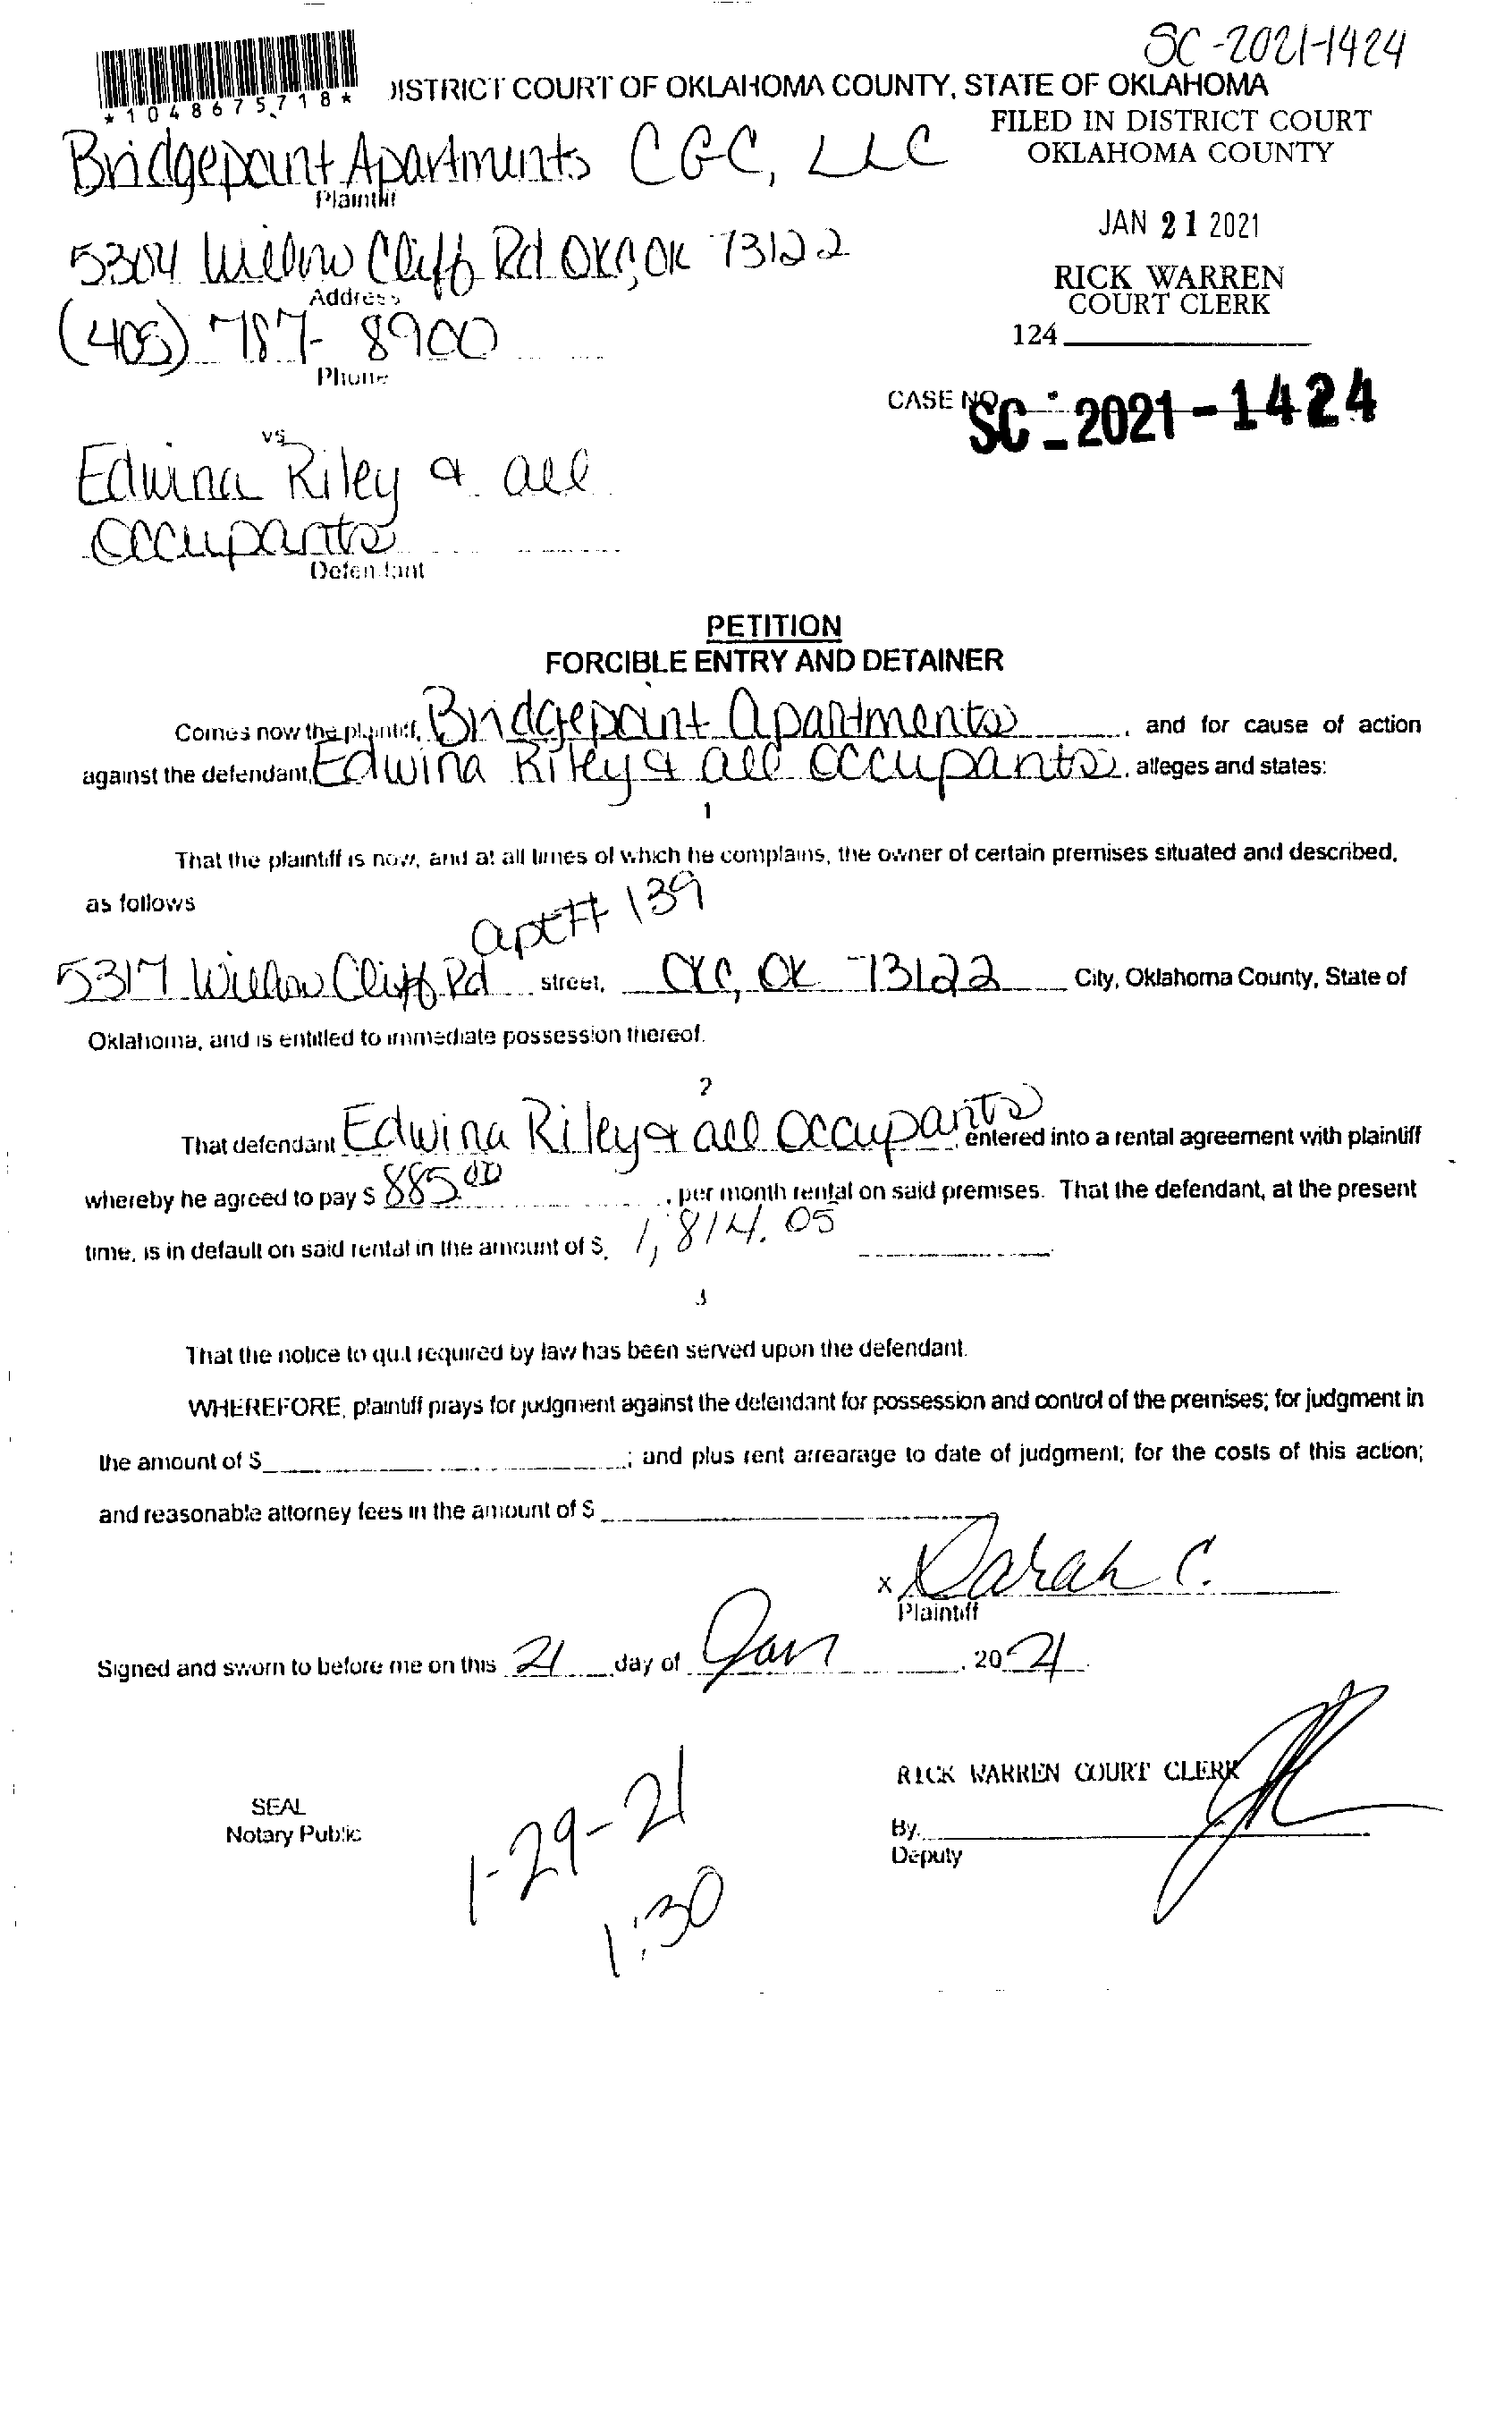 SC-2021-1424
*1048675718*
DISTRICT COURT OF OKLAHOMA COUNTY, STATE OF OKLAHOMA
FILED IN DISTRICT COURT
OKLAHOMA COUNTY
Bridgepoint Apartments CGC, LLC
Plaintiff
JAN 21 2021
5304 Willow Cliff Rd OKC, OK 73122
Address
RICK WARREN
COURT CLERK
(405) 787-8900
124
Phone
CASE NO. SC-2021-1424
vs
Edwina Riley & all
occupants
Defendant
PETITION
FORCIBLE ENTRY AND DETAINER
Comes now the plaintiff, Bridgepoint Apartments, and for cause of action
against the defendant, Edwina Riley & all occupants, alleges and states:
1
That the plaintiff is now, and at all times of which he complains, the owner of certain premises situated and described,
as follows
apt# 139
5317 Willow Cliff Rd street, OKC, OK 73122 City, Oklahoma County, State of
Oklahoma, and is entitled to immediate possession thereof.
2
That defendant Edwina Riley & all occupants, entered into a rental agreement with plaintiff
whereby he agreed to pay $ 885.00, per month rental on said premises. That the defendant, at the present
time, is in default on said rental in the amount of $, 1,814.05
3
That the notice to quit required by law has been served upon the defendant.
WHEREFORE, plaintiff prays for judgment against the defendant for possession and control of the premises; for judgment in
the amount of $; and plus rent arrearage to date of judgment; for the costs of this action;
and reasonable attorney fees in the amount of $
x Sarah C.
Plaintiff
Signed and sworn to before me on this 21 day of Jan, 2021.
RICK WARREN COURT CLERK
SEAL
Notary Public
By
Deputy
1-29-21
1:30